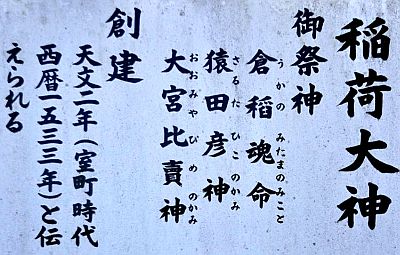 稲荷大神
御祭神
倉稲魂命
うかの みたまのみこと
猿田彦神
さるた ひこ のかみ
大宮比賣神
おおみや びめ のかみ
創建
天文二年(室町時代
西暦一五三三年)と伝
えられる